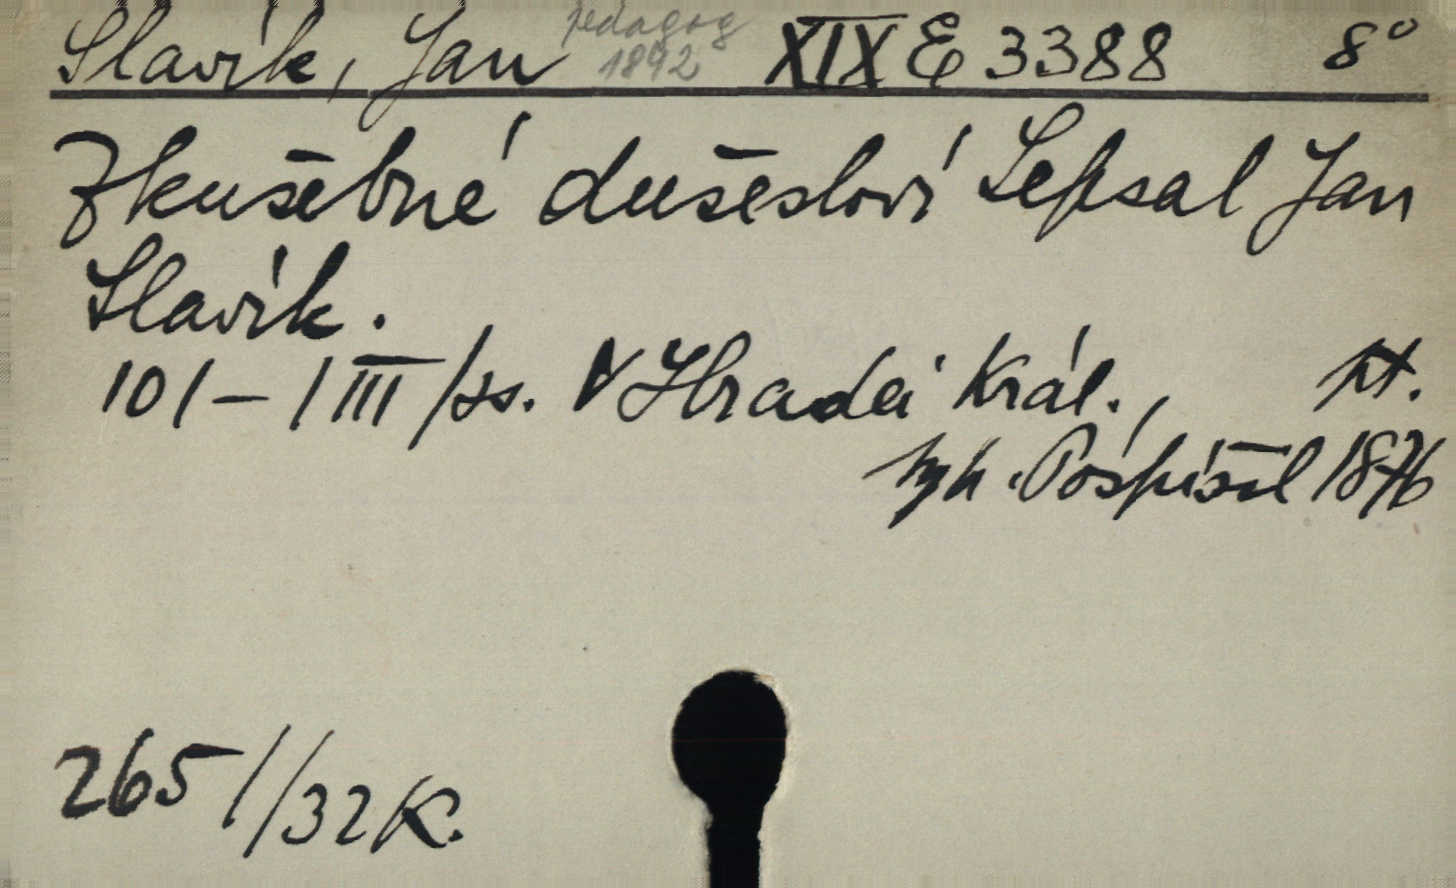 Slavík, Jan pedagog 1892 XIX E 3388 8°
Zkušebné dušesloví Sepsal Jan
Slavík.
101 – 1 III /ss. V Hradci Král., kt.
Pospíšil 1876
2651/32 K.